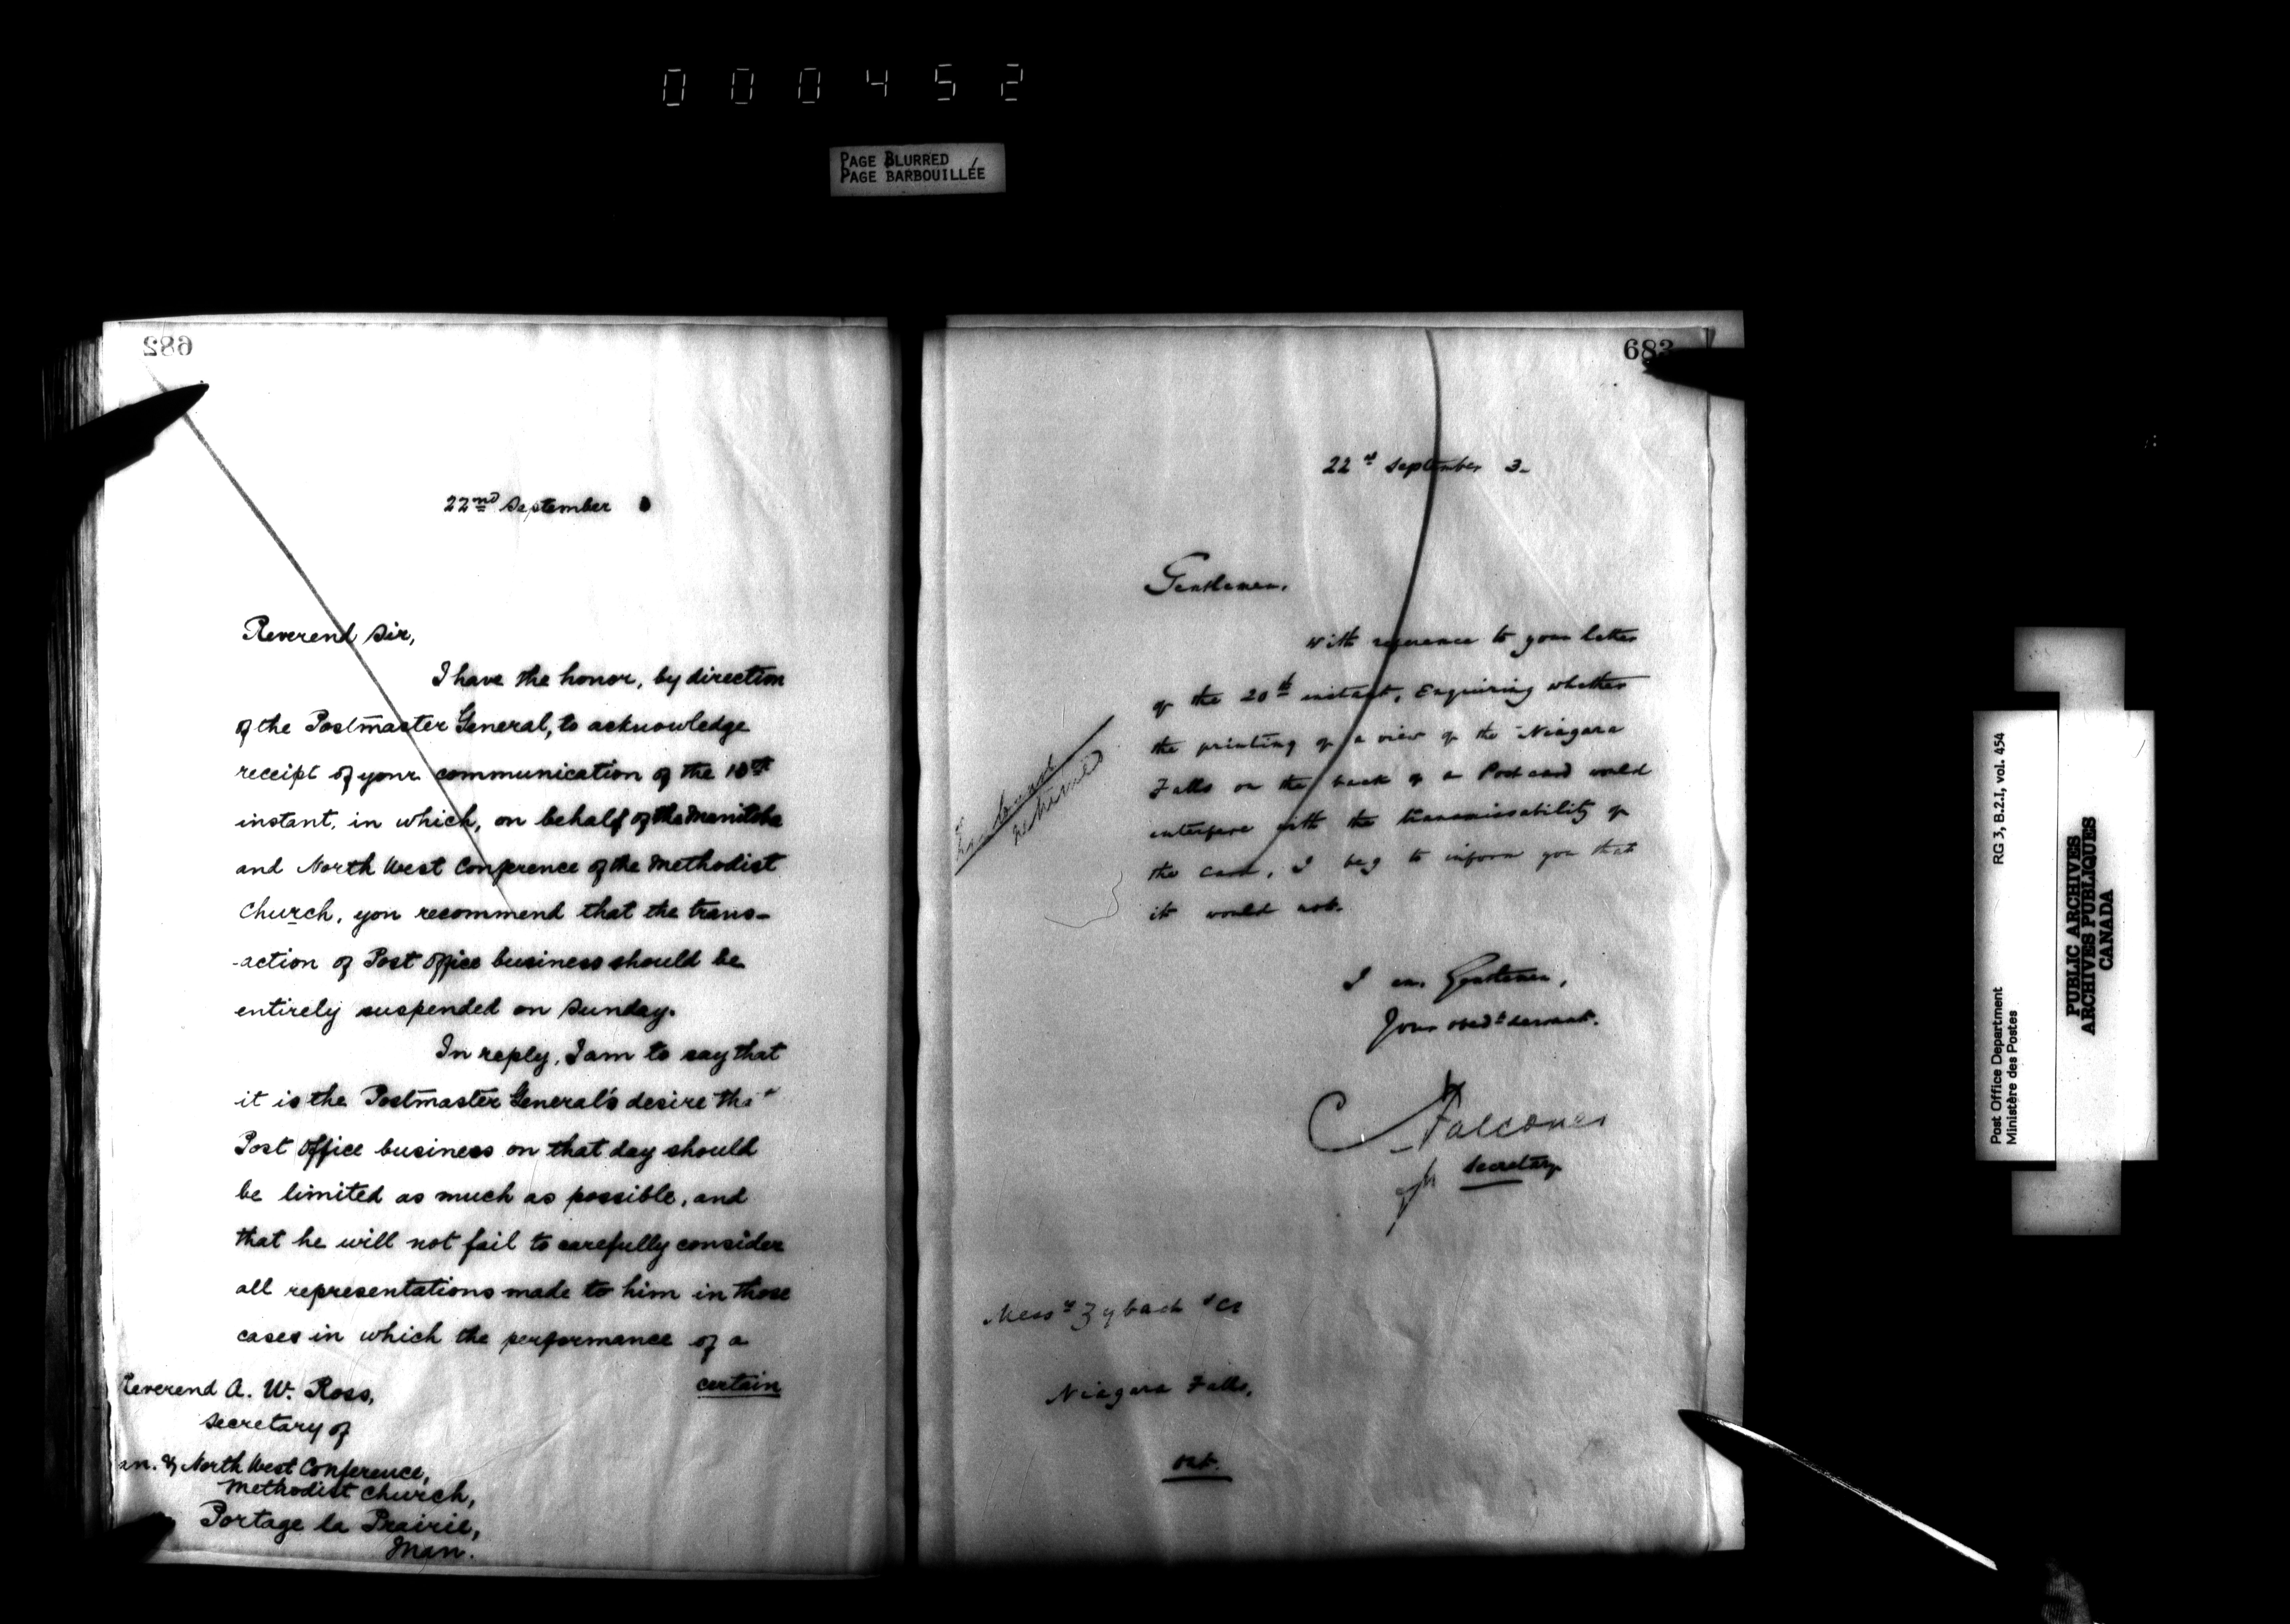 000452
PAGE BLURRED
PAGE BARBOUILLÉE
682
22nd September
Reverend Sir,
I have the honor, by direction
of the Postmaster General, to acknowledge
receipt of your communication of the 10th
instant, in which, on behalf of the Manitoba
and North West Conference of the Methodist
Church, you recommend that the trans-
-action of Post Office business should be
entirely suspended on Sunday.
In reply, I am to say that
it is the Postmaster General's desire that
Post Office business on that day should
be limited as much as possible, and
that he will not fail to carefully consider
all representations made to him in those
cases in which the performance of a
certain
Reverend A. W. Ross,
Secretary of
an. & North West Conference,
Methodist Church,
Portage la Prairie,
Man.
683
22nd September 3.
Gentlemen,
With reference to your letter
of the 20th instant, Enquiring whether
the printing of a view of the Niagara
Falls on the back of a Post card would
interfere with the transmissability of
the card, I beg to inform you that
it would not.
returned
I am, Gentlemen,
Your obedt servant.
Falconer
for Secretary
Messrs Zybach & Co
Niagara Falls,
Ont.
Post Office Department
Ministère des Postes
RG 3, B.2.I, vol. 454
PUBLIC ARCHIVES
ARCHIVES PUBLIQUES
CANADA